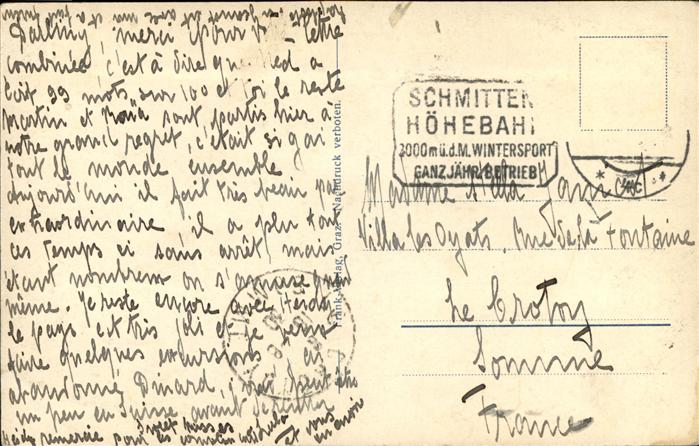 Darling, merci pour ta lettre
combinée, c'est à dire que Ted a
écrit 99 mots sur 100 et toi le reste
Martin et Rona sont partis hier à
notre grand regret, c'était si gai
tout le monde ensemble
aujourd'hui il fait très beau par
extraordinaire, il a plu tout
ces temps ci sans arrêt, mais
étant nombreux on s'amuse quand
même. Je reste encore avec
le pays est très joli et je peux
faire quelques excursions. ai
abandonné Dinard, irai peut être
un peu en Suisse avant de rentrer
remercie pour
Sweet kisses
et vous
Frank-Verlag, Graz. Nachdruck verboten.
SCHMITTEN
HÖHEBAHN
2000m ü.d.M. WINTERSPORT
GANZJÄHR. BETRIEB
Madame
Villa les Oyats, rue de la Fontaine
Le Crotoy
Somme
France